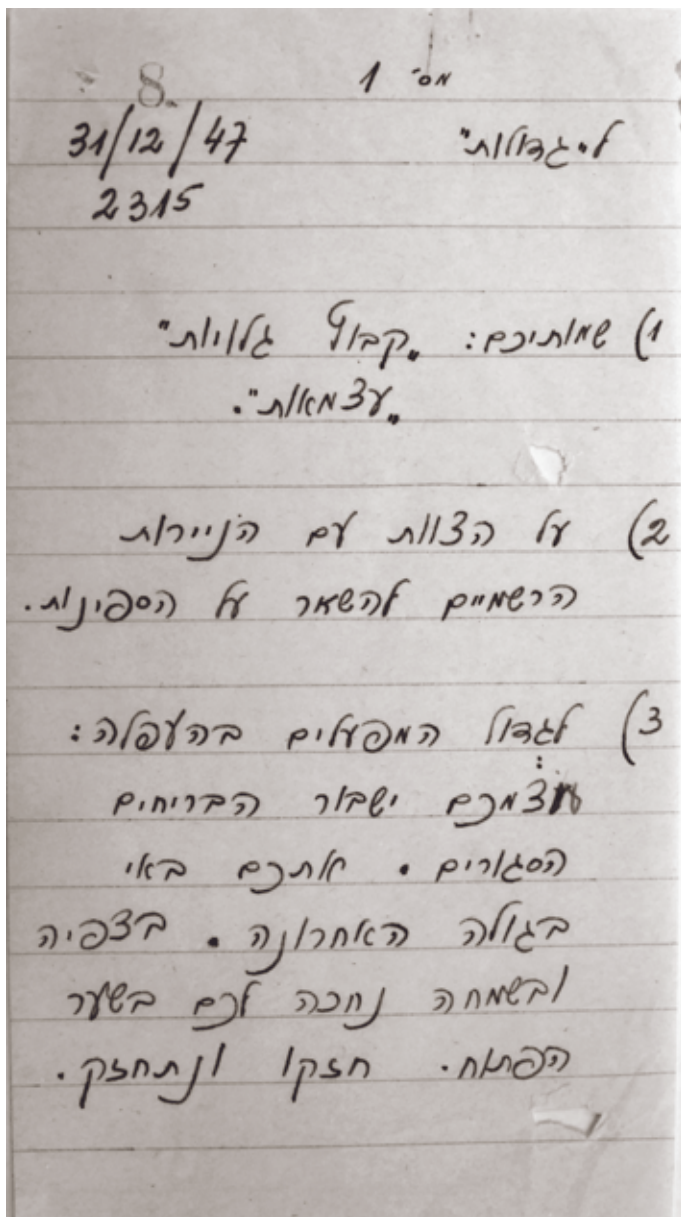 מס' 1
8.
ל"גדולות"
31/12/47
2315
1) שמותיכם: "קבוץ גלויות"
"עצמאות".
2) על הצוות עם הניירות
הרשמיים להשאר על הספינות.
3) לגדול המפעלים בהעפלה:
עצמכם ישבור הבריחים
הסגורים. אתכם באי
בגולה האחרונה. בצפיה
ובשמחה נחכה לכם בשער
הפתוח. חזקו ונתחזק.